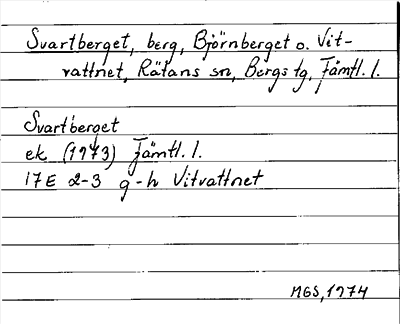 Svartberget, berg, Björnberget o. Vit-
vattnet, Rätans sn, Bergs tg, Jämtl. l.
Svartberget
ek (1973) Jämtl. l.
17E 2-3 g-h Vitvattnet
MGS, 1974